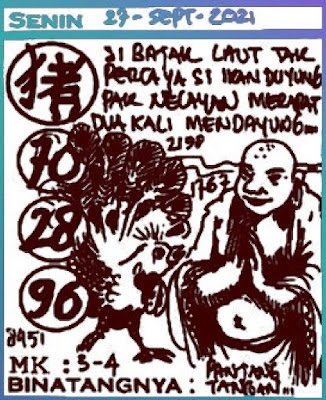 SENIN 27-SEPT-2021
猪 SI BAJAK LAUT TAK
PERCAYA SI IKAN DUYUNG
PAK NELAYAN MERAPAT
DUA KALI MENDAYUNG...
2198
70
767
28
96
8951
MK : 3-4
BINATANGNYA : PANTANG
TANGAN...